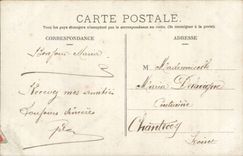 CARTE POSTALE.
Tous les pays étrangers n'acceptent pas la correspondance au recto. (Se renseigner à la poste).
CORRESPONDANCE
ADRESSE
Bonjour Maria
Mademoiselle
Maria
Recevez mes amitiés
Toujours sincères
Chantecoq
Loiret